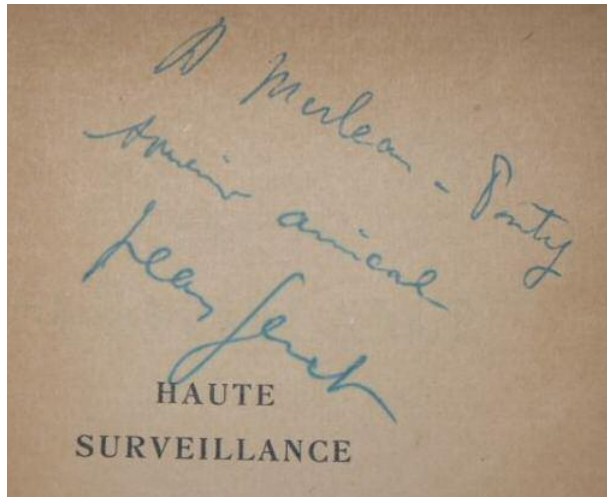 A Merleau-Ponty
souvenir amical
Jean Genet
HAUTE
SURVEILLANCE